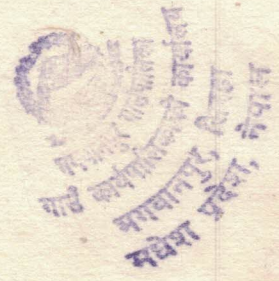 भगवानपुर गाउँपालिका
गाउँ कार्यपालिकाको कार्यालय
भगवानपुर, सिराहा
मधेश प्रदेश, नेपाल